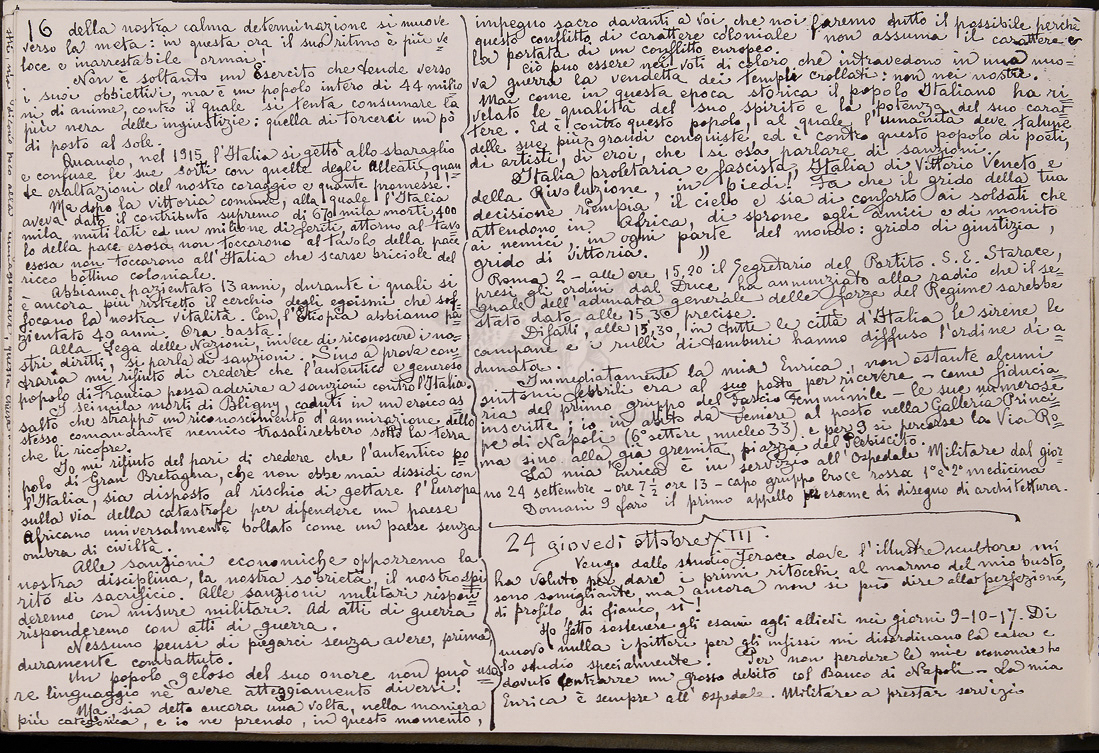 16 della nostra calma determinazione si muove
verso la meta: in questa ora il suo ritmo è più ve=
loce e inarrestabile ormai.
Non è soltanto un Esercito che tende verso
i suoi obbiettivi, ma è un popolo intero di 44 milio
ni di anime, contro il quale si tenta consumare la
più nera delle ingiustizie: quella di torcerci un pò
di posto al sole.
Quando, nel 1915, l'Italia si gettò allo sbaraglio
e confuse le sue sorti con quelle degli Alleati, quan
te esaltazioni del nostro coraggio e quante promesse!
Ma dopo la vittoria comune, alla quale l'Italia
aveva dato il contributo supremo di 670 mila morti, 400
mila mutilati ed un milione di feriti, attorno al tavo
lo della pace esosa non toccarono al tavolo della pace
esosa non toccarono all'Italia che scarse briciole del
ricco bottino coloniale.
Abbiamo pazientato 13 anni, durante i quali si
è ancora più ristretto il cerchio degli egoismi che sof=
focano la nostra vitalità. Con l'Etiopia abbiamo pa=
zientato 40 anni. Ora basta!
Alla Lega delle Nazioni, invece di riconoscere i no=
stri diritti, si parla di sanzioni. Sino a prova con=
traria mi rifiuto di credere che l'autentico e generoso
popolo di Francia possa aderire a sanzioni contro l'Italia.
I seimila morti di Bligny caduti in un eroico as
salto che strappò un riconoscimento d'ammirazione dello
stesso comandante nemico trasalirebbero sotto la terra
che li ricopre.
Io mi rifiuto del pari di credere che l'autentico po
polo di Gran Bretagna, che non ebbe mai dissidi con
l'Italia, sia disposto al rischio di gettare l'Europa
sulla via della catastrofe per difendere un paese
Africano universalmente bollato come un paese senza
ombra di civiltà.
Alle sanzioni economiche opporremo la
nostra disciplina, la nostra sobrietà, il nostro spi
rito di sacrificio. Alle sanzioni militari rispon
deremo con misure militari. Ad atti di guerra
risponderemo con atti di guerra.
Nessuno pensi di piegarci senza avere, prima
duramente combattuto.
Un popolo geloso del suo onore non può usa
re linguaggio nè avere atteggiamento diversi!
Ma, sia detto ancora una volta, nella maniera
più categorica, e io ne prendo, in questo momento,
impegno sacro davanti a voi, che noi faremo tutto il possibile perchè
questo conflitto di carattere coloniale non assuma il carattere e
la portata di un conflitto europeo.
Ciò può essere nei voti di coloro che intravedono in una nuo=
va guerra la vendetta dei templi crollati: non nei nostri.
Mai come in questa epoca storica il popolo Italiano ha ri
velato le qualità del suo spirito e la potenza del suo carat
tere. Ed è contro questo popolo, al quale l'umanità deve talune
delle sue più grandi conquiste, ed è contro questo popolo di poeti,
di artisti, di eroi, che si osa parlare di sanzioni.
Italia proletaria e fascista, Italia di Vittorio Veneto e
della Rivoluzione, in piedi! Fa che il grido della tua
decisione riempia il cielo e sia di conforto ai soldati che
attendono in Africa, di sprone agli amici e di monito
ai nemici in ogni parte del mondo: grido di giustizia,
grido di vittoria. "
Roma 2 - alle ore 15,20 il Segretario del Partito S. E. Starace,
presi gli ordini dal Duce, ha annunziato alla radio che il se=
gnale dell'adunata generale delle forze del Regime sarebbe
stato dato alle 15,30 precise.
Difatti, alle 15,30, in tutte le città d'Italia le sirene, le
campane e i rulli di tamburi hanno diffuso l'ordine di a
dunata.
Immediatamente la mia Enrica, non ostante alcuni
sintomi febbrili era al suo posto per ricevere - come fiducia=
ria del primo gruppo del Fascio Femminile - le sue numerose
inscritte; io in abito da Seniore al posto nella Galleria Princi=
pe di Napoli (6° settore, nucleo 33) e per 9 si percorse la Via Ro=
ma sino alla già gremita, piazza del Plebiscito.
La mia Enrica è in servizio all'Ospedale Militare dal gior=
no 24 settembre - ore 7½ ore 13 - capo gruppo Croce rossa 1ª e 2ª medicina.
Domani 9 farò il primo appello per esame di disegno di architettura.
24 giovedì ottobre XIII.
Vengo dallo studio Jerace dove l'illustre scultore, mi
ha voluto per dare i primi ritocchi, al marmo del mio busto,
sono somigliante, ma ancora non si può dire alla perfezione,
di profilo, di fianco, sì!
Ho fatto sostenere gli esami agli allievi nei giorni 9-10-17. Di
nuovo nulla i pittori per gli infissi mi disordinano la casa e
lo studio specialmente! Per non perdere le mie economie ho
dovuto contrarre un grosso debito col Banco di Napoli - La mia
Enrica è sempre all'Ospedale Militare a prestar servizio